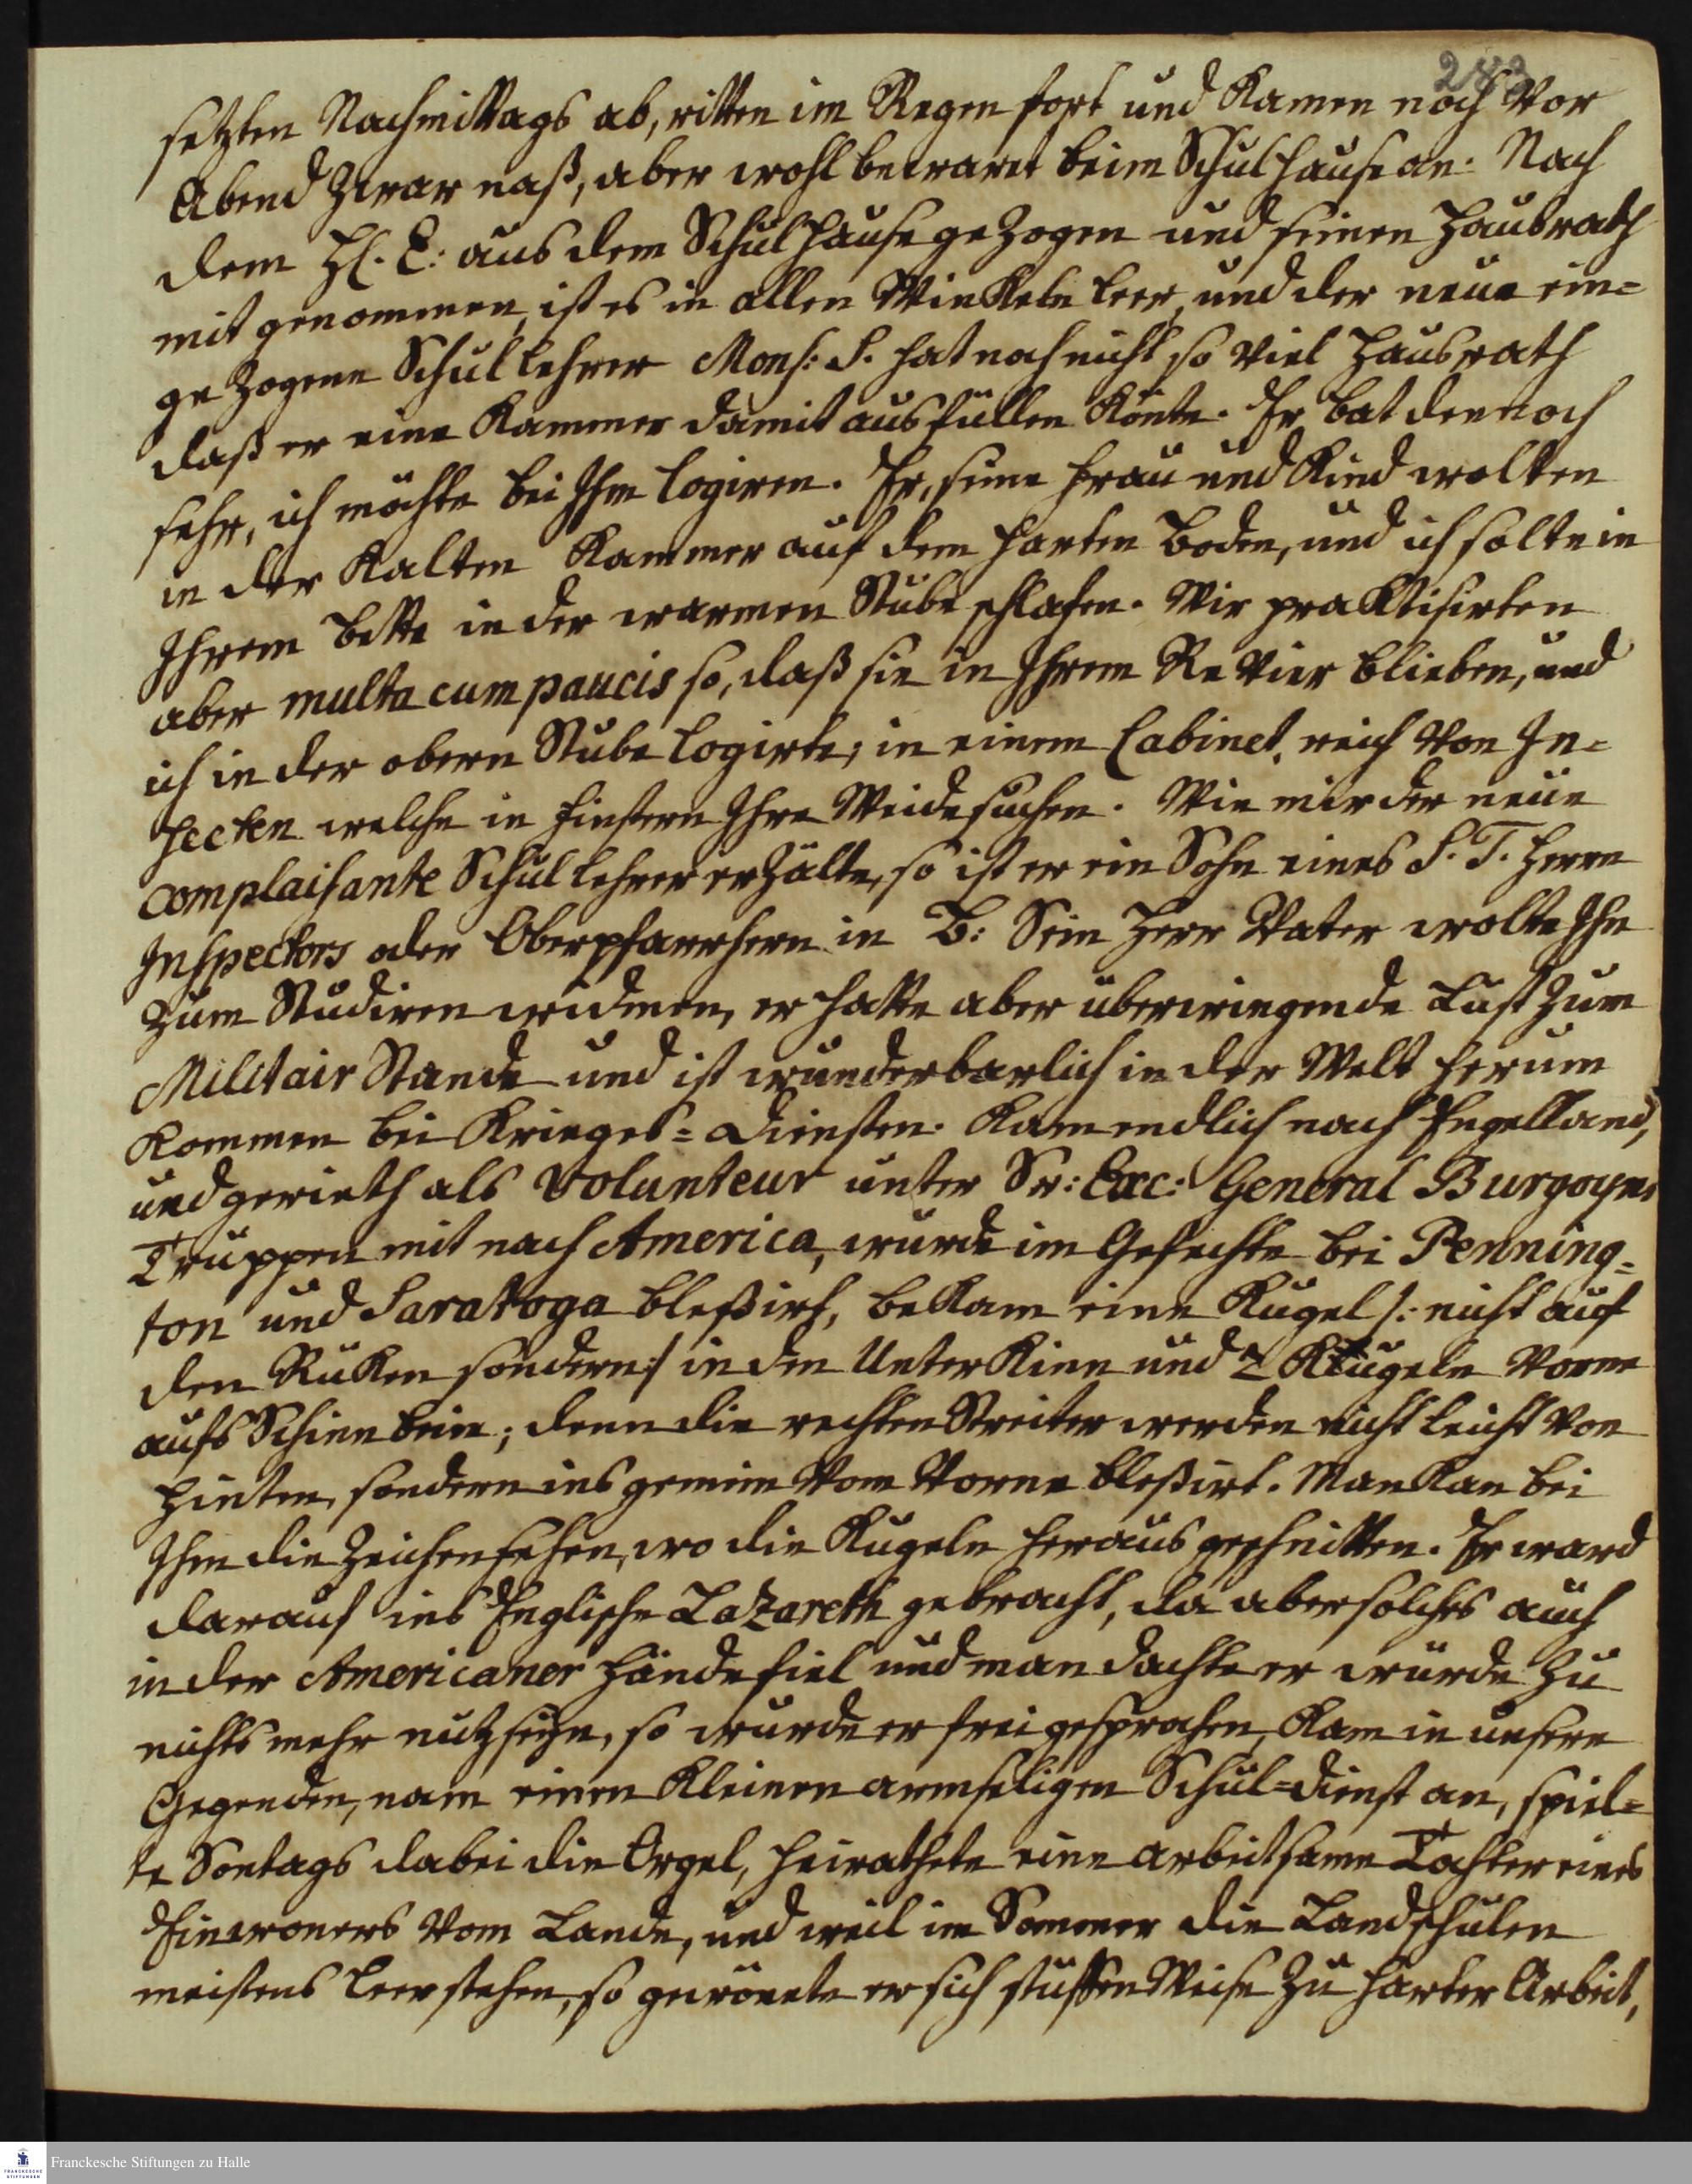 283
setzten Nachmittags ab, ritten im Regen fort und kamen noch vor
Abend zwar naß, aber wohl bewaret beim Schulhause an. Nach
dem H. E: aus dem Schulhause gezogen und seinen Hausrath
mit genommen, ist es in allen Winkeln leer, und der neue ein=
gezogene Schullehrer Mons: S. hat noch nicht so viel Hausrath
daß er eine Kammer damit ausfüllen könte. Er bat dennoch
sehr, ich möchte bei Ihm logiren. Er, seine Frau und Kind wolten
in der kalten Kammer auf dem harten Boden, und ich solte in
Ihrem Bette in der warmen Stube schlafen. Wir praktisirten
aber multa cum paucis so, daß sie in Ihrem Revier blieben, und
ich in der obern Stube logirte; in einem Cabinet, reich von In=
secten welche in finstern Ihre Weide suchen. Wie mir der neue
complaisante Schullehrer erzälte, so ist er ein Sohn eines S. T. Herrn
Inspectors oder Oberpfarrhern in B: Sein Herr Vater wolte Ihn
zum Studiren widmen, er hatte aber überwiegende Lust zum
Militair Stande und ist wunderbarlich in der Welt herum
kommen bei Krieges=Diensten. Kam endlich nach Engelland,
und gerieth als Volunteur unter Sr: Exc: General Burgoyns
Truppen mit nach America, wurde im Gefechte bei Penning=
ton und Saratoga bleßirt, bekam eine Kugel /: nicht auf
den Rüken sondern :/ in den Unter Kinn und 2 Kugeln vorne
aufs Schinnbein; denn die rechten Streiter werden nicht leicht von
hinten, sondern ins gemein von vorne bleßirt. Man kan bei
Ihm die Zeichen sehen, wo die Kugeln heraus geschnitten. Er ward
darauf ins Englische Lazareth gebracht, da aber solches auch
in der Americaner Hände fiel und man dachte er würde zu
nichts mehr nutz seyn, so wurde er frei gesprochen, kam in unsere
Gegenden, nam einen kleinen armseligen Schul=dienst an, spiel=
te Sontags dabei die Orgel, heirathete eine arbeitsame Tochter eines
Einwoners vom Lande, und weil im Sommer die Landschulen
meistens leer stehen, so gewönete er sich stuffen Weise zu harter Arbeit,
Franckesche Stiftungen zu Halle
FRANCKESCHE
STIFTUNGEN